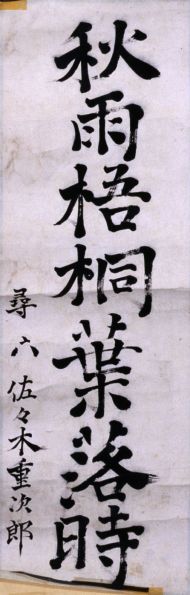 秋雨梧桐葉落時
尋六 佐々木重次郎